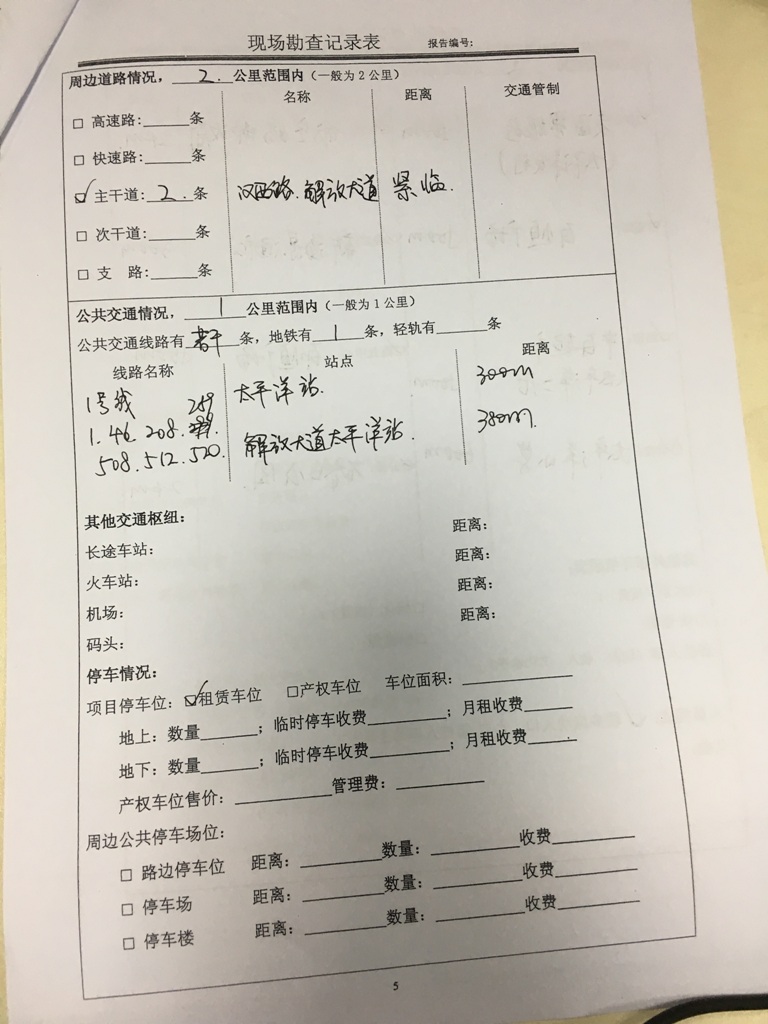 现场勘查记录表 报告编号:
周边道路情况，2.公里范围内（一般为2公里）
名称 距离 交通管制
□ 高速路:______条
□ 快速路:______条
☑ 主干道: 2. 条 汉西路.解放大道 紧临.
□ 次干道:______条
□ 支 路:______条
公共交通情况，1公里范围内（一般为1公里）
公共交通线路有 若干 条，地铁有 1 条，轻轨有______条
线路名称 站点 距离
1号线 太平洋站. 300m
289
1.46.208.
508.512.520. 解放大道太平洋站. 380m.
其他交通枢纽：
长途车站： 距离：
火车站： 距离：
机场： 距离：
码头： 距离：
停车情况：
项目停车位：☑租赁车位 □产权车位 车位面积：______
地上：数量______；临时停车收费______；月租收费______
地下：数量______；临时停车收费______；月租收费______
产权车位售价：______管理费：______
周边公共停车场位：
□ 路边停车位 距离：______数量：______收费______
□ 停车场 距离：______数量：______收费______
□ 停车楼 距离：______数量：______收费______
5